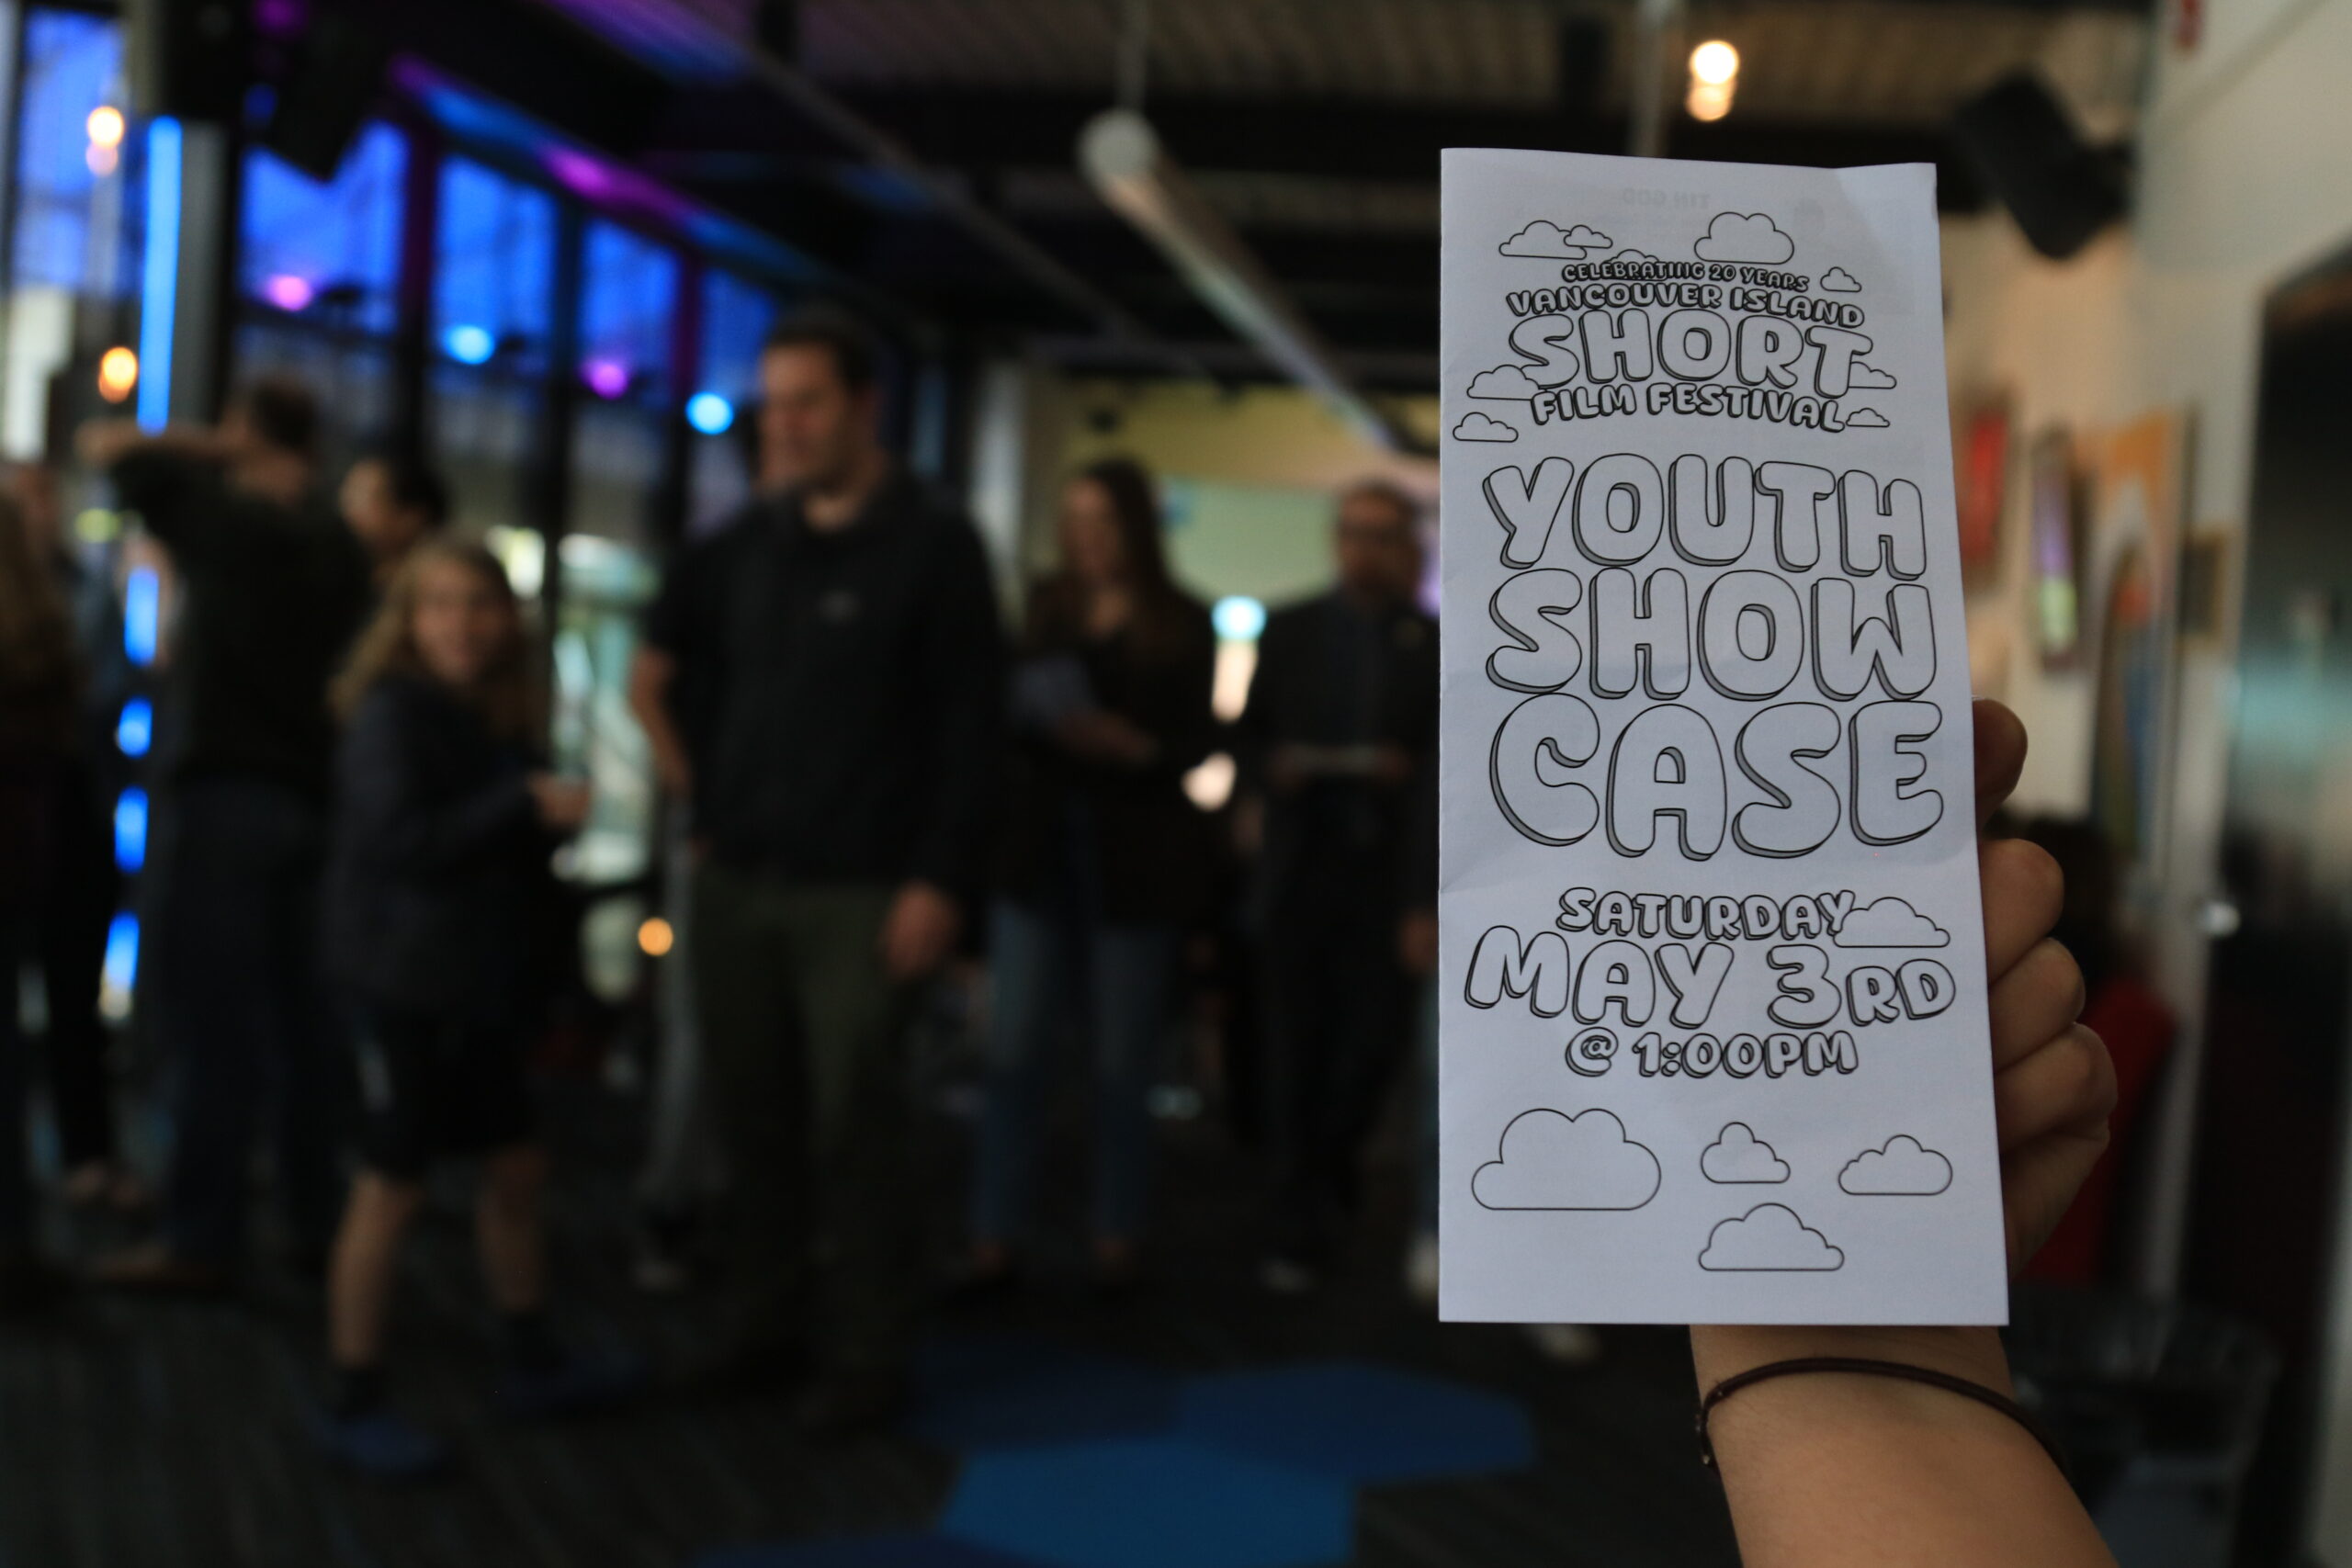 CELEBRATING 20 YEARS
VANCOUVER ISLAND
SHORT
FILM FESTIVAL
YOUTH
SHOW
CASE
SATURDAY
MAY 3RD
@ 1:00PM